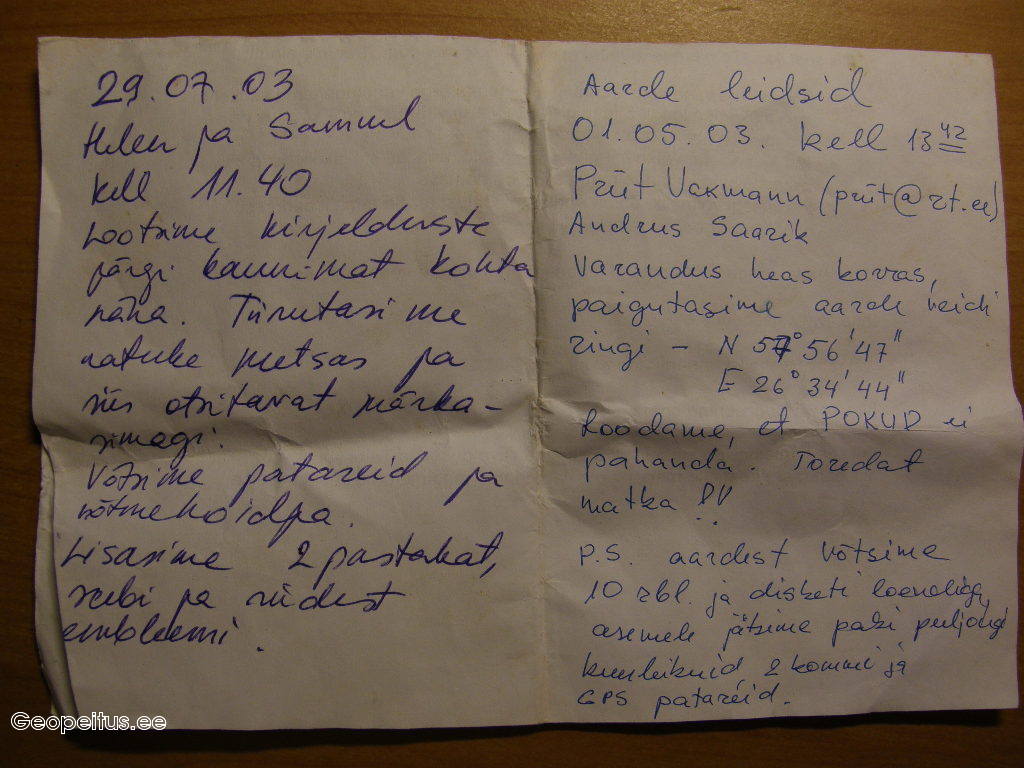 29.07.03
Helen ja Samuel
kell 11.40
Lootsime kirjelduste
järgi kaunimat kohta
näha. Tiirutasime
natuke metsas ja
siis otsitavat märka-
simegi.
Võtsime patareid ja
võtmehoidja.
Lisasime 2 pastakat,
seebi ja riidest
embleemi.
Aarde leidsid
01.05.03. kell 13 42
Priit Uckmann (priit@rt.ee)
Andrus Saarik
Varandus heas korras,
paigutasime aarde veidi
ringi – N 57° 56' 47"
E 26° 34' 44"
Loodame, et POKUD ei
pahanda. Toredat
matka !!!
P.S. aardest võtsime
10 rbl. ja disketi loenditega,
asemele jätsime paki puljongi
kuubikuid 2 kommi ja
GPS patareid.
Geopeitus.ee